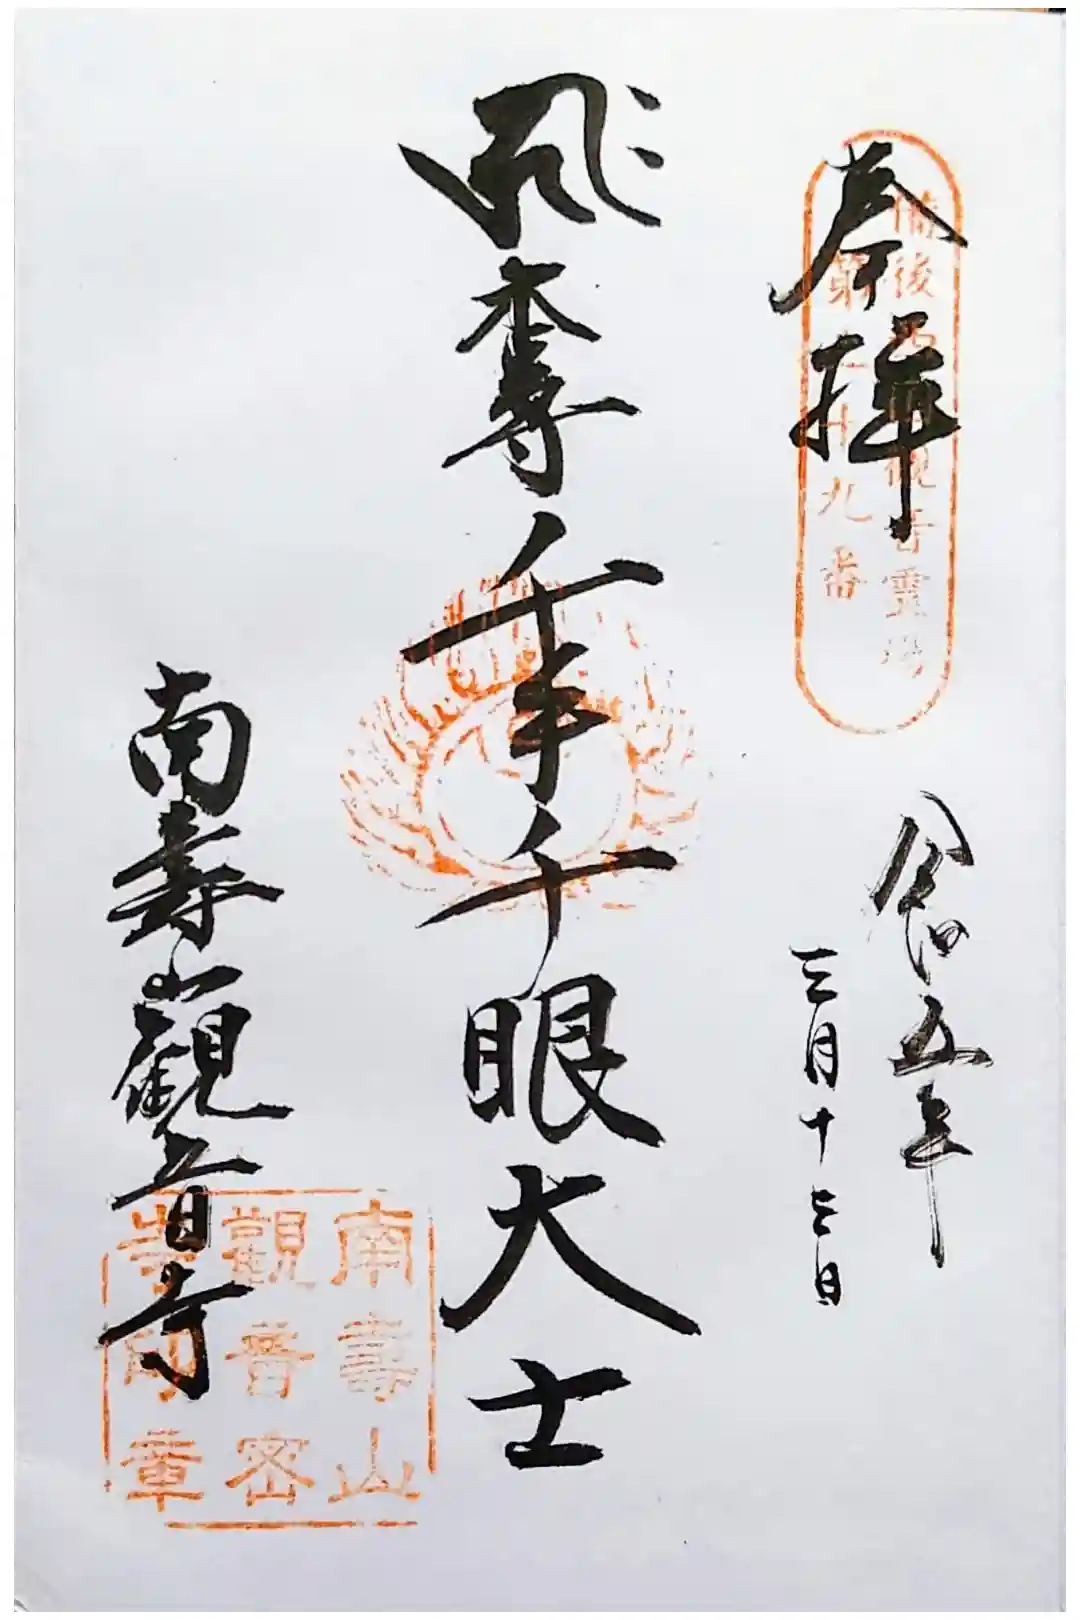 奉拝
備後西国観音霊場
第二十九番
令和五年
三月十三日
本尊千手千眼大士
南壽山觀音寺
南壽山
觀音密
寺印章